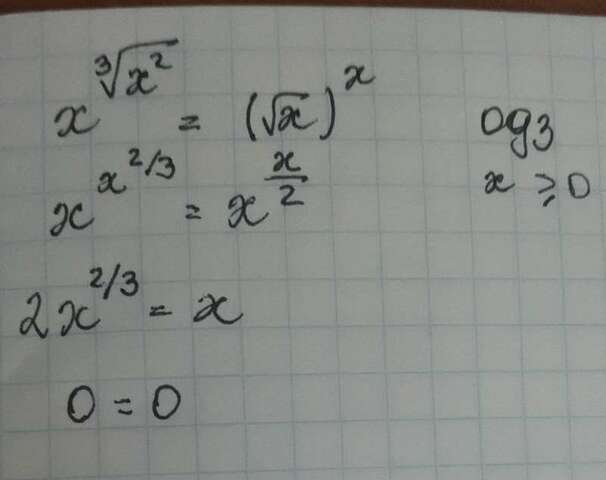 x^∛(x²) = (√x)^x ОДЗ
x^x^2/3 = x^x/2 x ⩾ 0
2x^2/3 = x
0 = 0